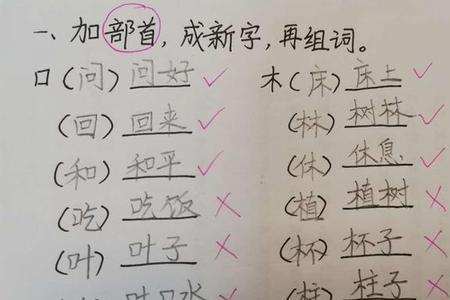 一、加部首，成新字，再组词。
口（问）问好 木（床）床上
（回）回来 （林）树林
（和）和平 （休）休息
（吃）吃饭 （植）植树
（叶）叶子 （杯）杯子
口水 （柱）柱子